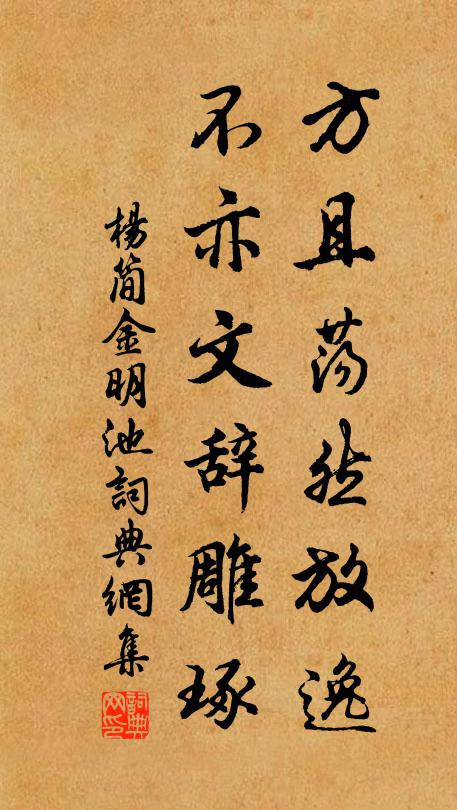 方且荡然放逸
不亦文辞雕琢
楊简金明池詞典網集
詞典网印